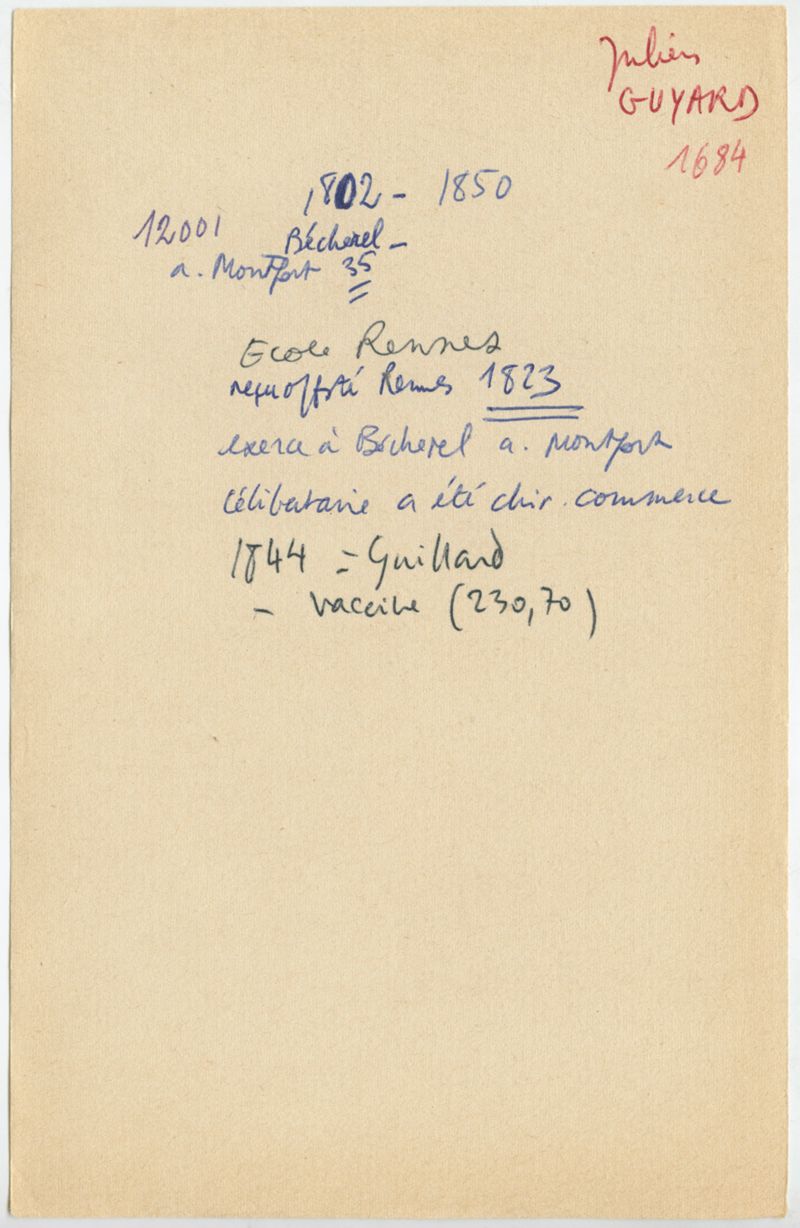 Julien
GUYARD
1684
1802 - 1850
12001 Bécherel -
a. Montfort 35
Ecole Rennes
reçu offsté Rennes 1823
exerce à Bécherel a. Montfort
Célibataire a été chir. commerce
1844 = Guillard
- vaccine (230,70)